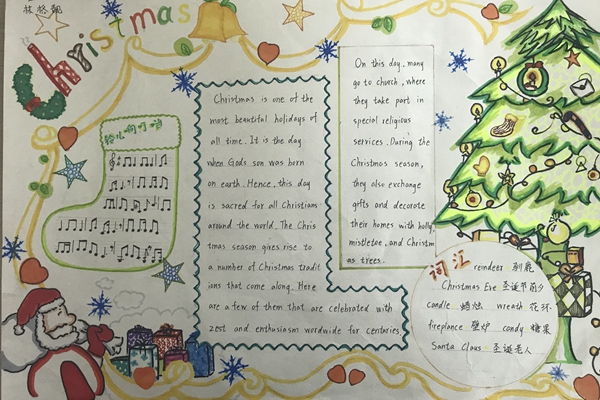 Christmas
铃儿响叮当
Christmas is one of the
most beautiful holidays of
all time. It is the day
when Gods son was born
on earth. Hence, this day
is sacred for all Christians
around the world. The Chris
tmas season gives rise to
a number of Christmas tradit
ions that come along. Here
are a few of them that are celebrated with
zest and enthusiasm wordwide for centuries
On this day, many
go to church, where
they take part in
special religious
services. During the
Christmas season,
they also exchange
gifts and decorate
their homes with holly,
mistletoe, and Christm
as trees.
词汇
reindeer 驯鹿
Christmas Eve 圣诞节前夕
candle 蜡烛 wreath 花环
fireplance 壁炉 candy 糖果
Santa Claus 圣诞老人